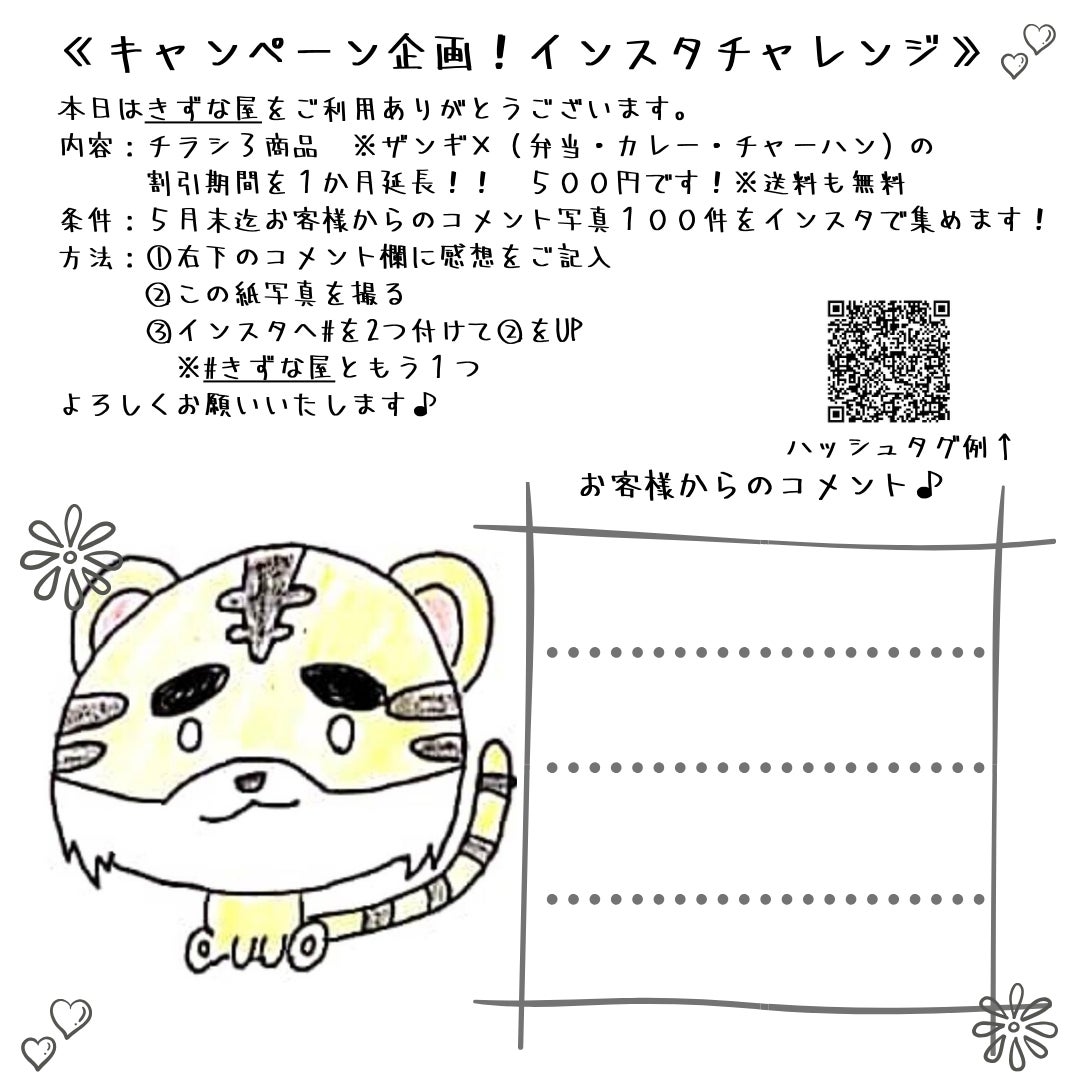 ≪キャンペーン企画！インスタチャレンジ≫
本日はきずな屋をご利用ありがとうございます。
内容：チラシ3商品　※ザンギ×（弁当・カレー・チャーハン）の
割引期間を1か月延長！！　500円です！※送料も無料
条件：5月末迄お客様からのコメント写真100件をインスタで集めます！
方法：①右下のコメント欄に感想をご記入
②この紙写真を撮る
③インスタへ#を2つ付けて②をUP
※#きずな屋ともう1つ
よろしくお願いいたします♪
ハッシュタグ例↑
お客様からのコメント♪